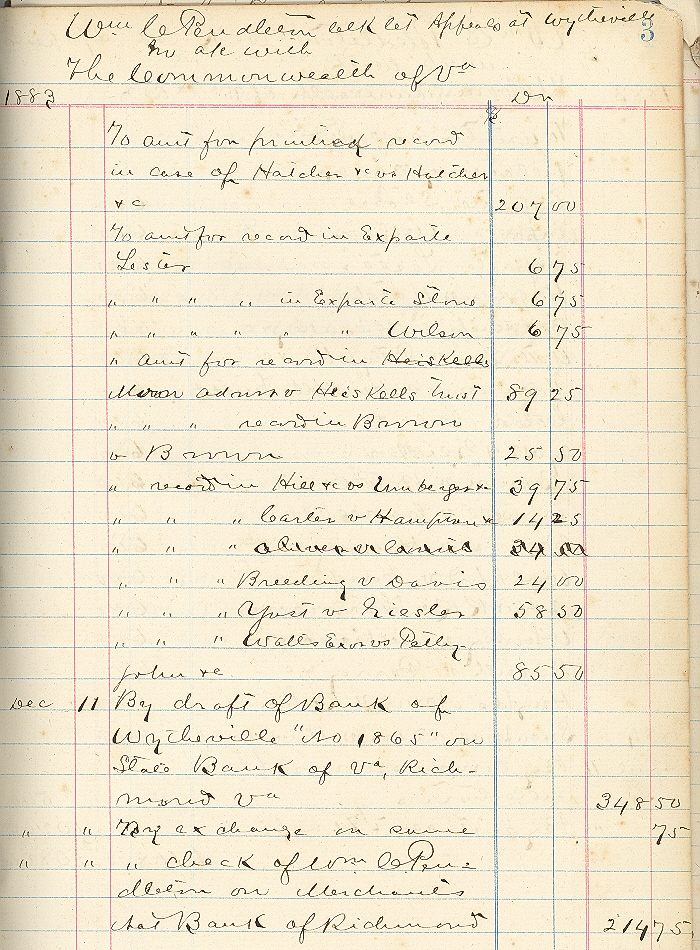 Wm C Pendleton clk Ct Appeals at Wytheville
In a/c with
The Commonwealth of Va
3
1883 Dr
To amt for printing record
in case of Hatcher &c vs Hatcher
&c 207 00
To amt for record in Exparte
Lester 6 75
" " " " in Exparte Stone 6 75
" " " " " " Wilson 6 75
" amt for record in Heiskells
admr v Heiskells Trust 89 25
" " " record in Brown
v Brown 25 50
" record in Hill &c vs Umbarger &c 39 75
" " " Carter v Hampton &c 14 25
" " " 34 00
" " " Breeding v Davis 24 00
" " " Yost v Giesler 58 50
" " " Walls Exor vs Petty
john &c 85 50
Dec 11 By draft of Bank of
Wytheville "No 1865" on
State Bank of Va, Rich-
mond Va 348 50
" " By exchange on same 75
" " " check of Wm C Pen-
dleton on Merchants
Nat Bank of Richmond 214 75